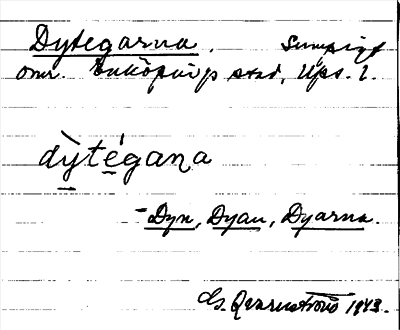 Dytegarna. Sumpigt
omr. Enköpings stad, Ups. l.
dỳtéga̲na
- Dyn, Dyan, Dyarna.
G. Qvarnström 1943.